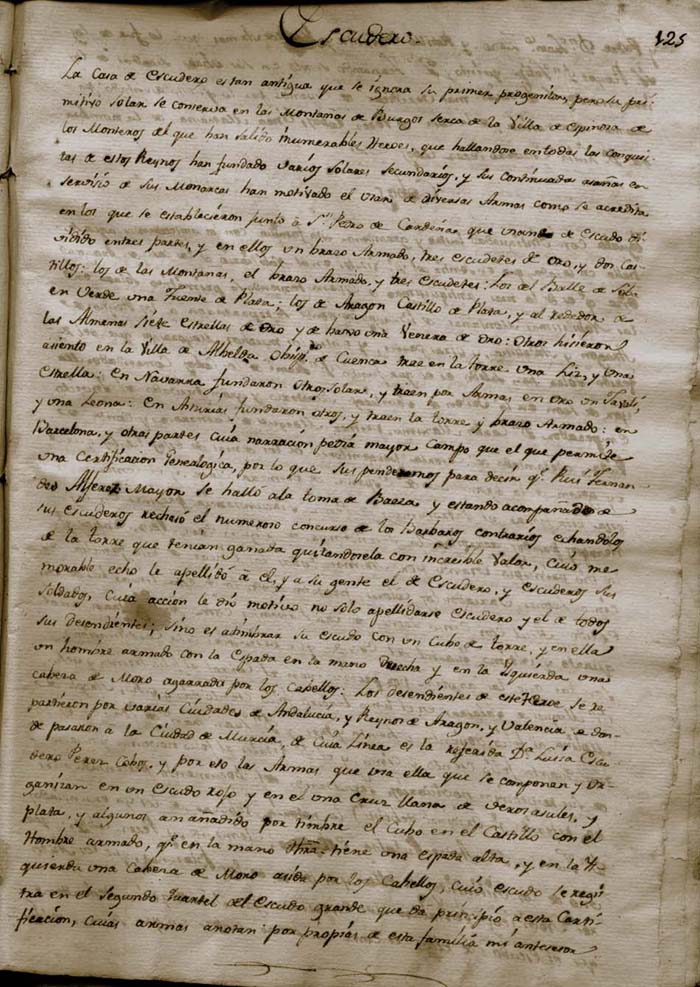 Escudero.
125
La Casa de Escudero es tan antigua que se ignora su primer progenitor, pero su pri-
mitivo solar se conserva en las Montañas de Burgos serca de la Villa de Espinosa de
los Monteros del que han salido inumerables Heroes, que hallandose en todas las conquis-
tas de estos Reynos han fundado varios solares secundarios, y sus continuadas asañas en
servisio de sus Monarcas han motivado el usar de diversas Armas como se acredita
en los que se establecieron junto à Sn. Pedro de Cardeña, que usan de Escudo di-
vidido entres partes, y en ellos un brazo Armado, tres escudetes de oro, y dos Cas-
tillos: los de las Montañas, el brazo Armado, y tres escudetes: Los del Balle de
en Verde una Fuente de Plata; los de Aragon Castillo de Plata, y al rededor de
las Almenas siete estrellas de oro y de baxo una Venera de oro: otros hisieron
asiento en la Villa de Albelda Obisp.do de Cuenca trae en la torre una Liz, y una
estrella: En Navarra fundaron otro solar, y traen por Armas en oro un Javali,
y una Leona: En Asturias fundaron otros, y traen la torre y brazo Armado: en
Barcelona, y otras partes cuia narracion pedia mayor Campo que el que permite
una Certificacion Genealogica, por lo que suspenderemos para decir q.e Rui Fernan-
des Alferez Mayor se halló a la toma de Baeza y estando acompañado de
sus escuderos rechasó el numeroso concurso de los Barbaros contrarios echandolos
de la torre que tenian ganada quitandosela con increible valor, cuio me
morable echo le apellidó à el, y a su gente el de Escudero, y escuderos sus
soldados, cuia accion le dio motivo no solo apellidarse escudero y el de todos
sus desendientes; sino es atimbrar su escudo con un Cubo de torre, y en ella
un hombre armado con la Espada en la mano derecha y en la Izquierda una
cabeza de Moro agarrada por los cabellos: Los desendientes de este Heroe se re
partieron por varias Ciudades de Andalucia, y Reynos de Aragon, y Valencia de don-
de pasaron a la Ciudad de Murcia, de cuia Linea es la referida Da. Luisa Escu
dero Perez Cobos, y por eso las Armas que usa ella que se componan y or-
ganizan en un Escudo rojo y en el una Cruz llana de veros asules, y
plata, y algunos an añadido por timbre el Cubo en el Castillo con el
Hombre armado, q.e en la mano tiene una espada alta, y en la Iz-
quierda una Cabeza de Moro asida por los Cabellos, cuio escudo se regis
tra en el segundo Quartel del Escudo grande que da prinsipio a esta Certi-
ficacion, cuias armas anotan por propias de esta familia mi antesesor